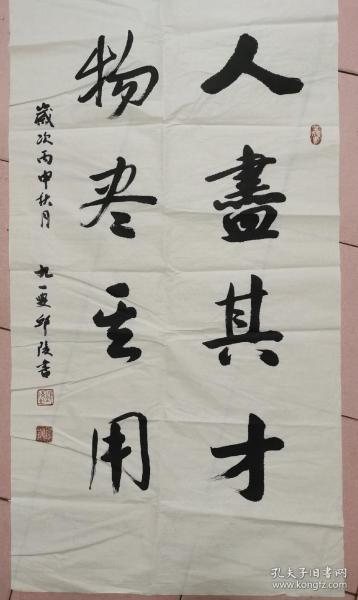 人盡其才
物尽其用
歲次丙申秋月
九一叟邱陵書
孔夫子旧书网
www.kongfz.com